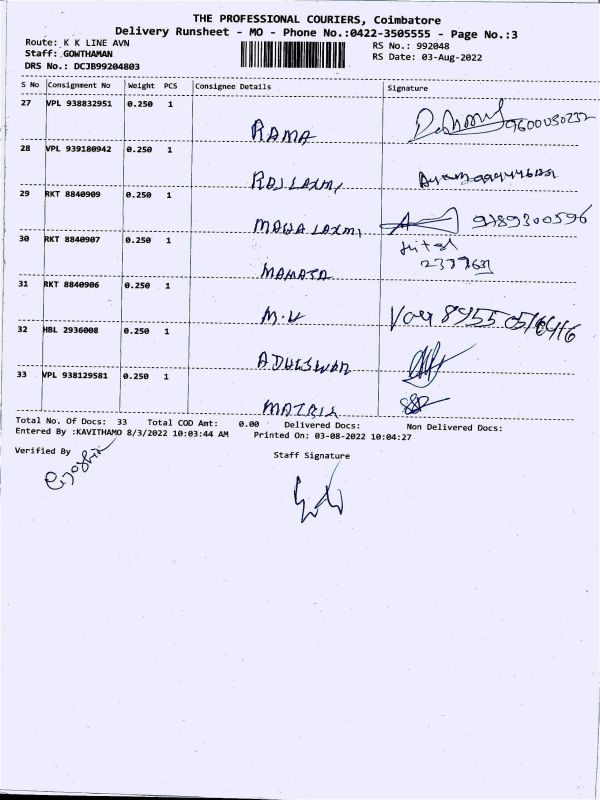 THE PROFESSIONAL COURIERS, Coimbatore
Delivery Runsheet - MO - Phone No.:0422-3505555 - Page No.:3
Route: K K LINE AVN
RS No.: 992048
Staff: GOWTHAMAN
RS Date: 03-Aug-2022
DRS No.: DCJB99204803
S No Consignment No Weight PCS Consignee Details Signature
27 VPL 938832951 0.250 1
RAMA
28 VPL 939180942 0.250 1
RAJ LAXMI
29 RKT 8840909 0.250 1
MAHA LAXMI 9789300596
30 RKT 8840907 0.250 1
MAMATA
31 RKT 8840906 0.250 1
M.V
32 HBL 2936008 0.250 1
33 VPL 938129581 0.250 1
MATRIX
Total No. Of Docs: 33 Total COD Amt: 0.00 Delivered Docs: Non Delivered Docs:
Entered By :KAVITHAMO 8/3/2022 10:03:44 AM Printed On: 03-08-2022 10:04:27
Verified By
Staff Signature